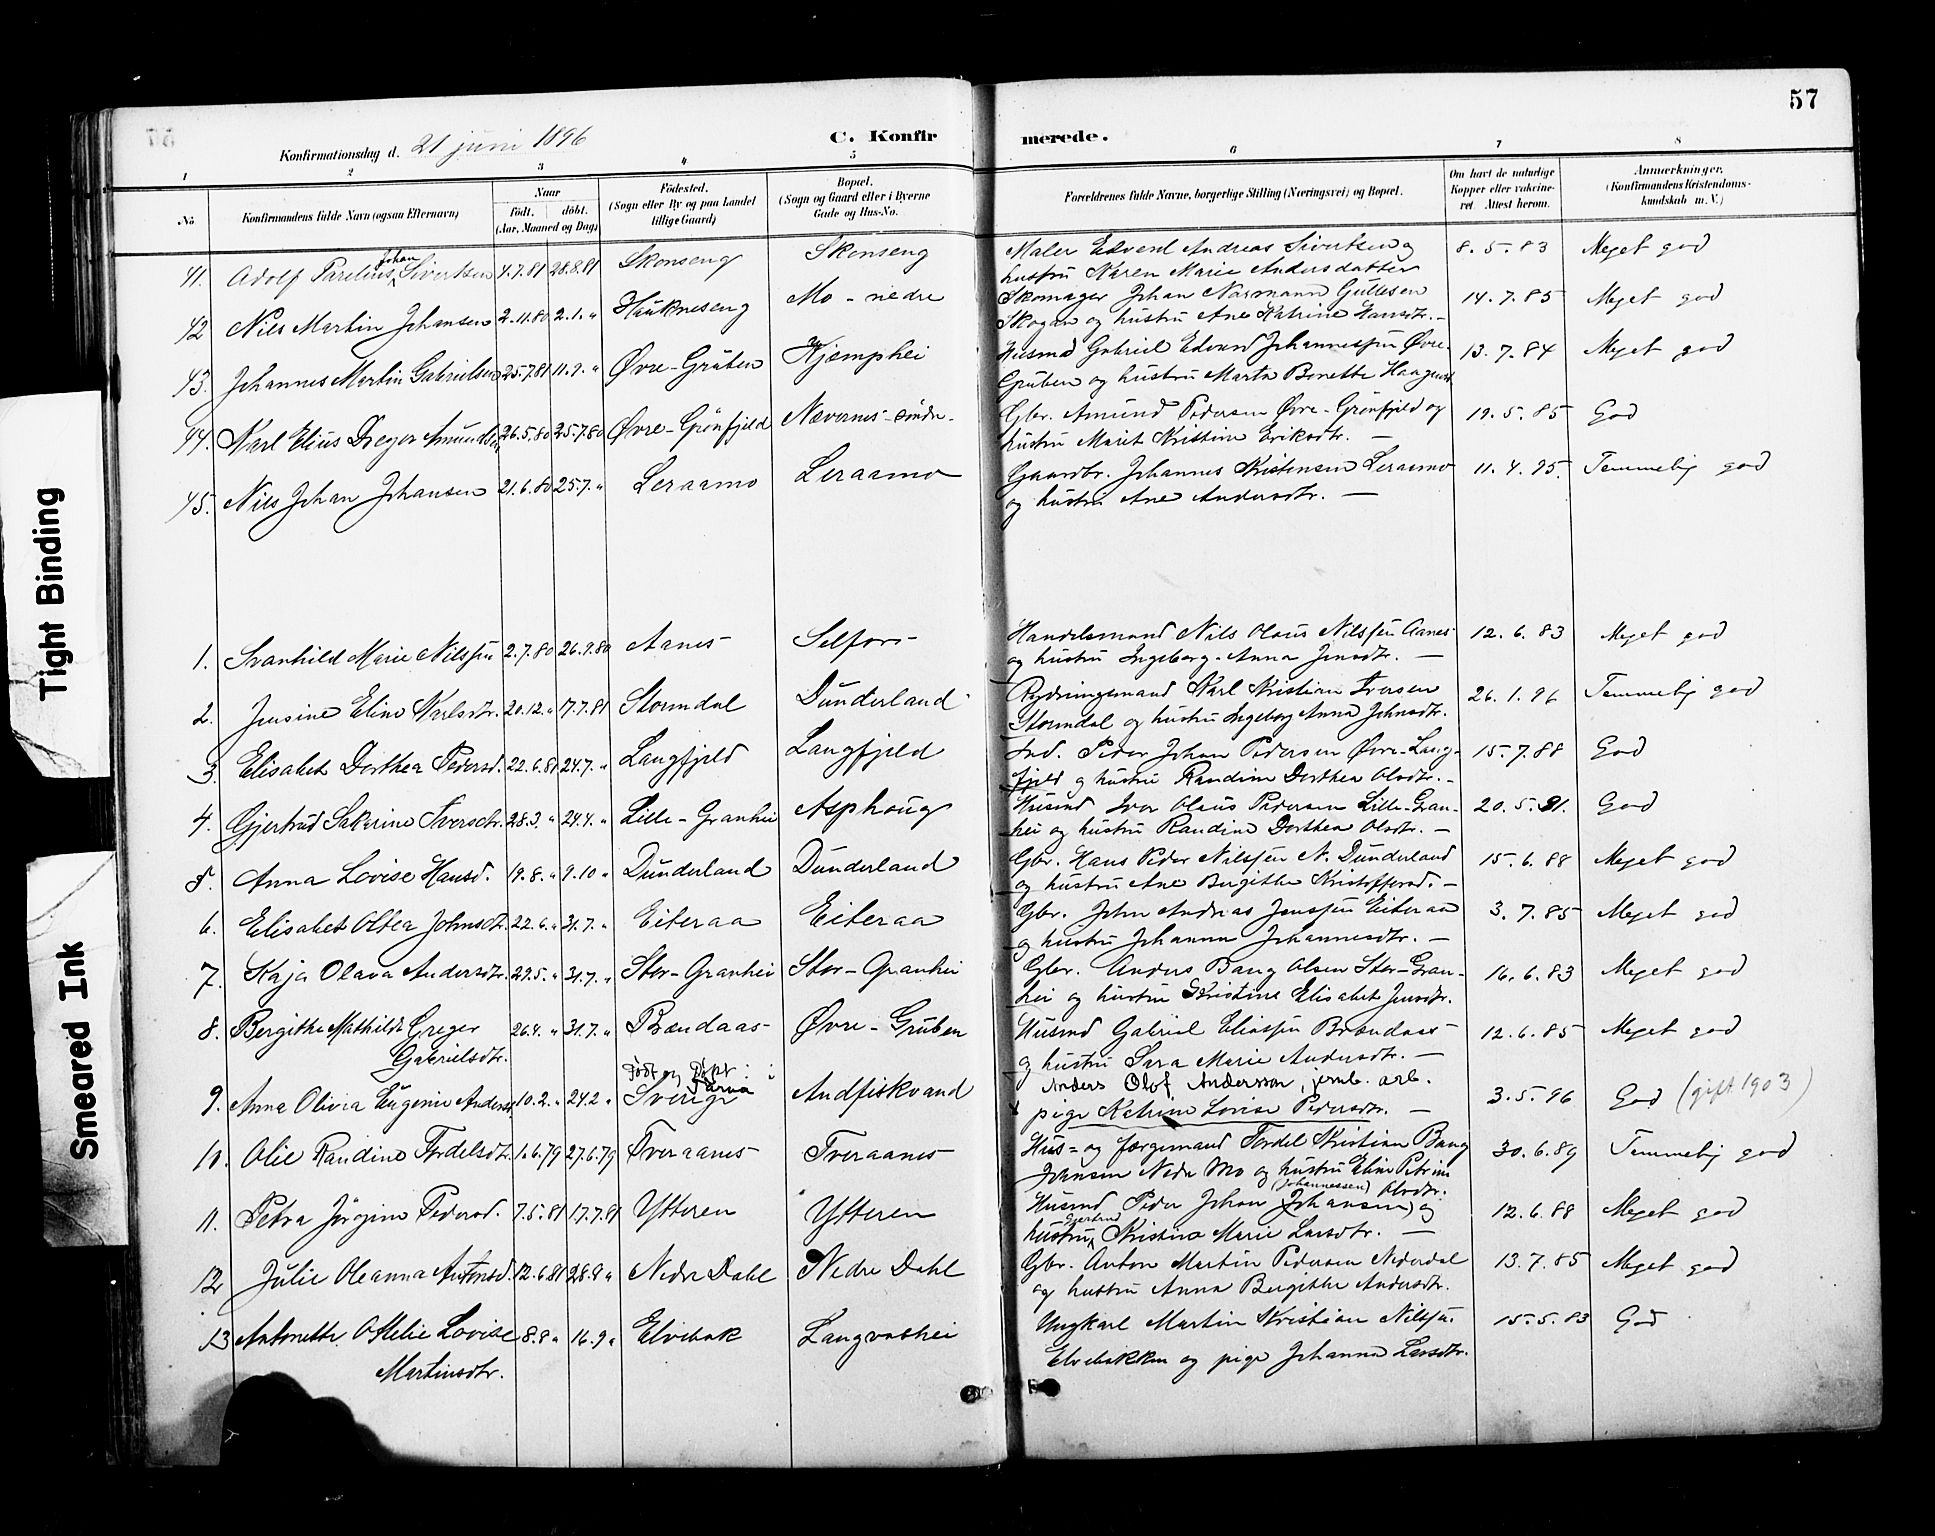 57
Konfirmationsdag d. 21 juni 1896
C. Konfirmerede.
1 2 3 4 5 6 7 8
No.
Konfirmandens fulde Navn (ogsaa Efternavn)
Naar
Født. døbt.
(Aar, Maaned og Dag)
Fødested.
(Sogn eller By og paa Landet
tillige Gaard)
Bopæl.
(Sogn og Gaard eller i Byerne
Gade og Hus-No.
Forældrenes fulde Navne, borgerlige Stilling (Næringsvei) og Bopæl.
Om havt de naturlige
Kopper eller vakcine-
ret. Attest herom.
Anmærkninger.
(Konfirmandens Kristendoms-
kundskab m. V.)
41. Adolf Parelius Johan Sivertsen 4.7.81 28.8.81 Skonseng Skonseng Maler Edvard Andreas Sivertsen og 8.5.83 Meget god
hustru Karen Marie Andersdatter
42 Nils Martin Johansen 2.11.80 2.1.„ Haukneseng Mo-nedre Skomager Johan Normann Gullesen 14.7.85 Meget god
Skogan og hustru Ane Katrine Hansdtr.
43. Johannes Martin Gabrielsen 25.7.81 11.9.„ Øvre-Gruben Kjemphei Husmd Gabriel Edvard Johannessen Øvre- 13.7.84 Meget god
Gruben og hustru Marta Bonette Haagensd
44. Karl Elius Dreyer Amundsen 26.5.80 25.7.80 Øvre-Grønfjeld Nævernes-søndre Gbr. Amund Pedersen Øvre-Grønfjeld og 19.5.85 God
hustru Maret Kristine Eriksdtr. —
45. Nils Johan Johansen 21.6.80 25.7.„ Leraamo Leraamo Gaardbr. Johannes Kristensen Leraamo 11.4.95. Temmelig god
og hustru Ane Andersdtr. —
1. Svanhild Marie Nilssen 2.7.80 26.9.80 Aanes Selfors Handelsmand Nils Olaus Nilssen Aanes 12.6.83 Meget god
og hustru Ingeborg Anna Jensdtr. —
2. Jensine Eline Karlsdtr. 20.12.„ 17.7.81 Stormdal Dunderland Rydningsmand Karl Kristian Iversen 26.1.96 Temmelig god
Stormdal og hustru Ingeborg Anna Johnsdtr.
3. Elisabet Dorthea Pedersd. 22.6.81 24.7.„ Langfjeld Langfjeld Ind. Peder Johan Pedersen Øvre-Lang- 15.7.88 God
fjeld og hustru Randine Dorthea Olsdtr. —
4. Gjertrud Sakrine Iversdtr. 28.3.„ 24.4.„ Lille-Granhei Asphaug Husmd Iver Olaus Pedersen Lille-Gran- 20.5.81. God
hei og hustru Randine Dorthea Olsdtr. —
5. Anna Lovise Hansd. 19.8.„ 9.10„ Dunderland Dunderland Gbr. Hans Peder Nilssen N. Dunderland 15.6.88 Meget god
og hustru Ane Bergitha Kristoffersd. —
6. Elisabet Oltea Johnsdtr. 22.6.„ 31.7.„ Eiteraa Eiteraa Gbr. John Andreas Jenssen Eiteraa 3.7.85 Meget god
og hustru Johanna Johannesdtr. —
7. Kaja Olava Andersdtr. 29.5.„ 31.7.„ Stor-Granhei Stor-Granhei Gbr. Anders Bang Olsen Stor-Gran- 16.6.83 Meget god
hei og hustru Kristine Elisabet Jensdtr.
8. Bergitha Mathilde Greger 26.4.„ 31.7.„ Brændaas Øvre-Gruben Husmd Gabriel Eliassen Brændaas 12.6.85 Meget god
Gabrielsdtr. og hustru Sara Marie Andersdtr. —
Født og Døpt i
Tärna
9. Anna Olivia Eugenie Andersd. 10.2.„ 24.2„ Sverige Andfiskvand Anders Olof Andersson, jernb. arb. 3.5.96 God (gift 1903)
x pige Katrine Lovise Pedersdtr. —
10. Olie Randine Tordelsdtr. 1.6.79 27.6.79 Tveraanes Tveraanes Hus= og færgemand Tordel Kristian Bang 30.6.89 Temmelig god
Jvansen Nedre Mo og hustru Eline Petrine
Olsdtr.
11. Petra Jørgine Pedersd. 7.5.81 17.7.81 Ytteren Ytteren Husmd Peder Johan Johansen (Johannessen) og 12.6.88 Meget god
hustru Gjertrud Kristina Marie Larsdtr. —
12 Julie Oleanna Antonsd. 12.6.81 28.8„ Nedre Dahl Nedre Dahl Gbr. Anton Martin Pedersen Nederdal 13.7.85 Meget god
og hustru Anna Bergitha Andersdtr.
13 Antonette Ottelie Lovise 8.8„ 16.9„ Elvebak Langvashei Ungkarl Martin Kristian Nilssen 15.5.83 God
Martinsdtr. Elvebakken og pige Johanna Larsdtr.
Tight Binding
Smeared Ink